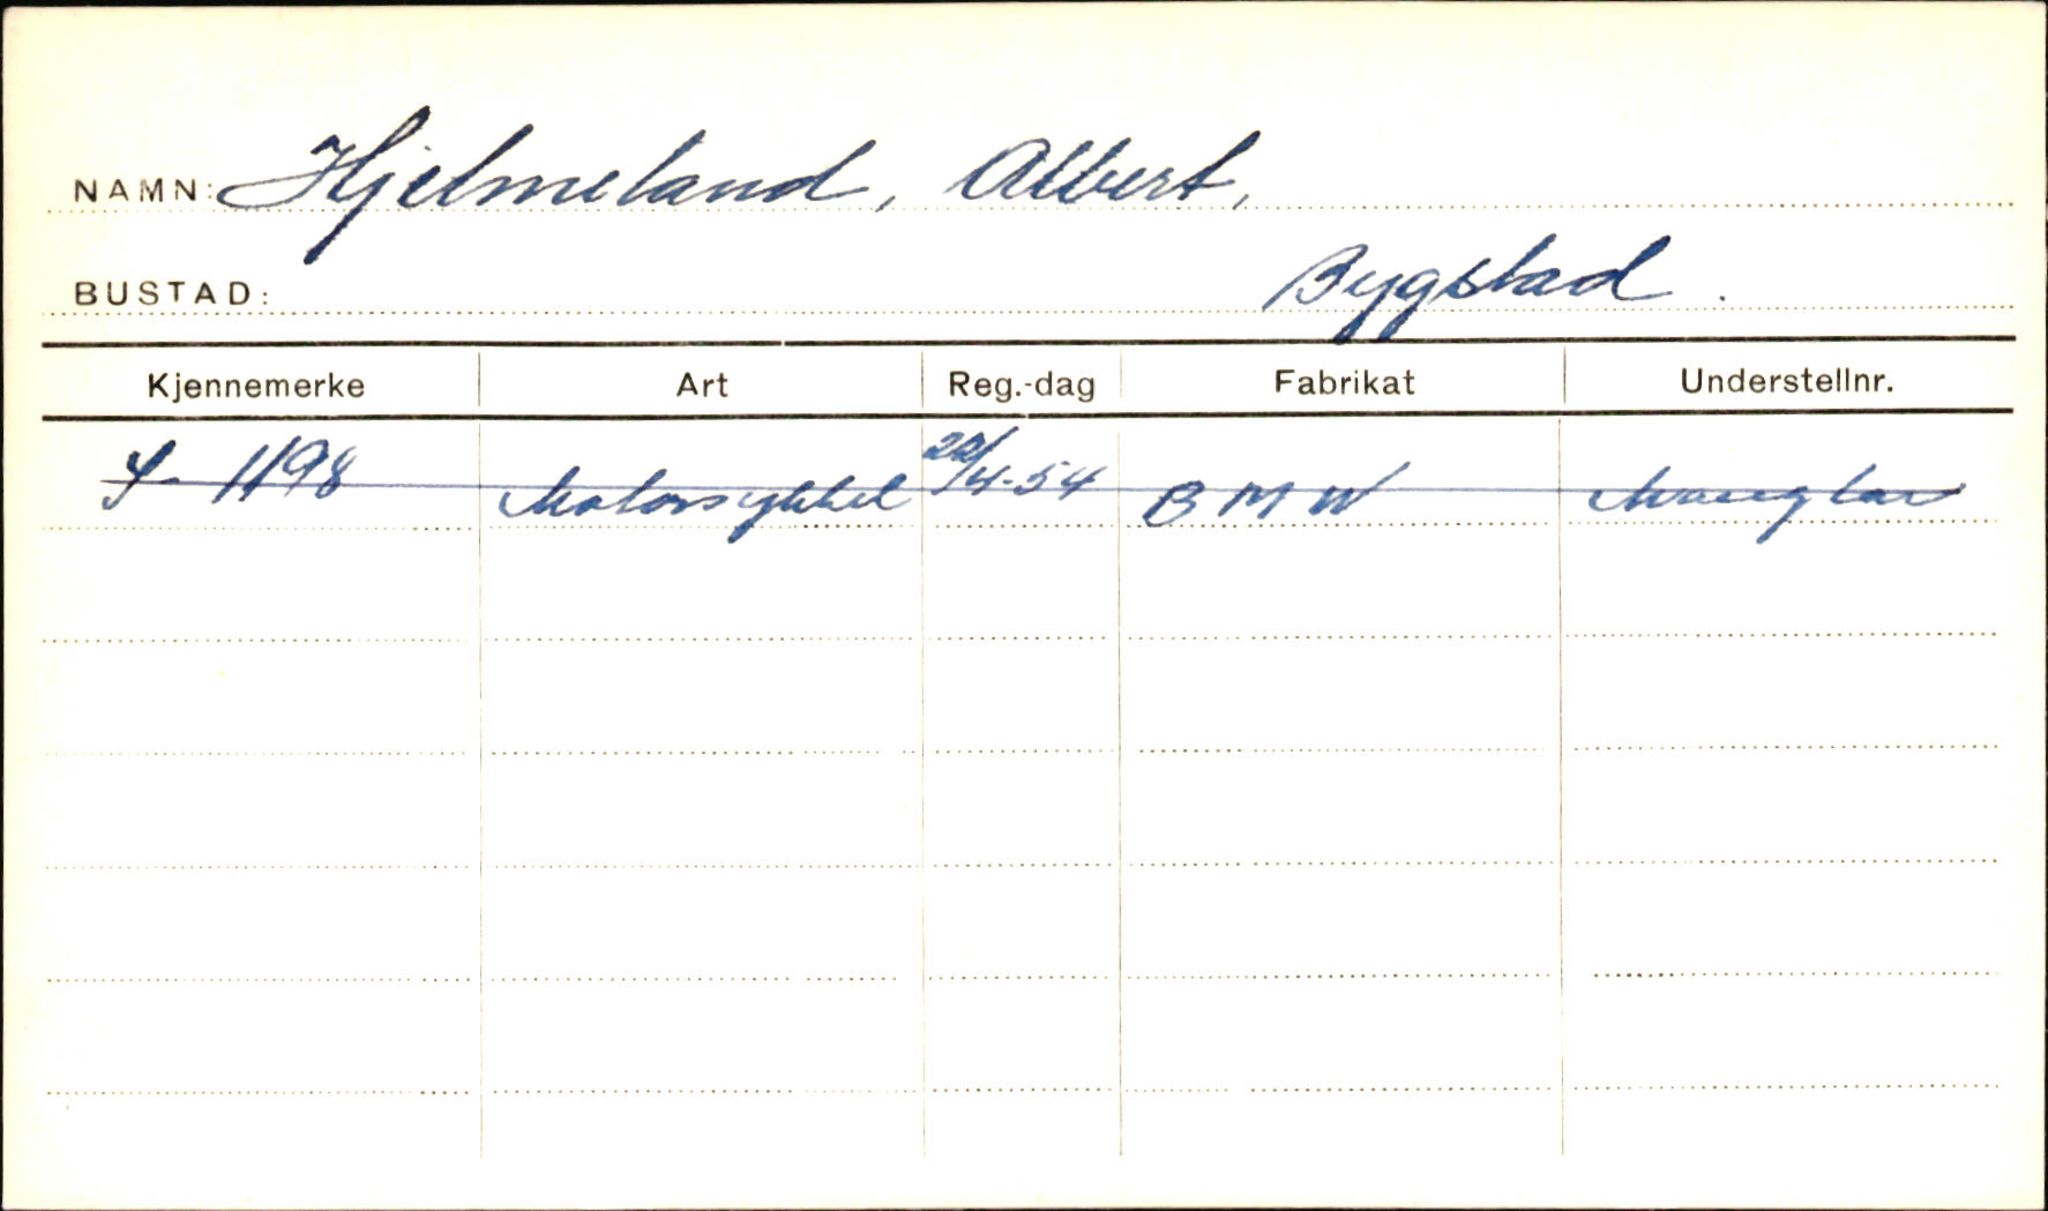 NAMN: Hjelmeland, Albert,
BUSTAD: Bygstad.
Kjennemerke Art Reg.-dag Fabrikat Understellnr.
S- 1198 Motorsykkel 22/4-54 BMW Manglar